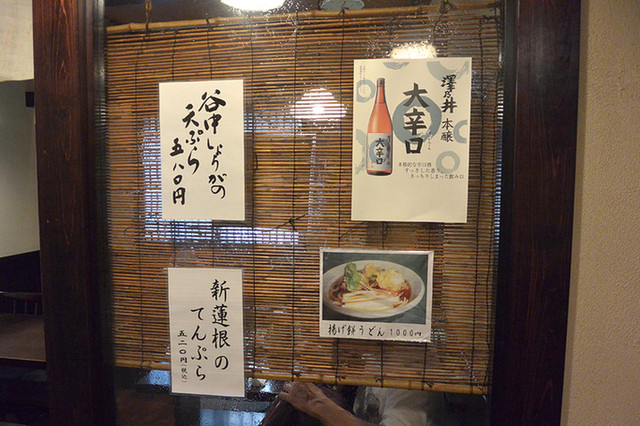 谷中しょうがの
天ぷら
五八〇円
澤乃井 本醸
大辛口
大辛口
本格的な辛口酒
すっきりした香り、
きっちりしまった飲み口
新蓮根の
てんぷら
五二〇円(税込)
揚げ餅うどん 1000円